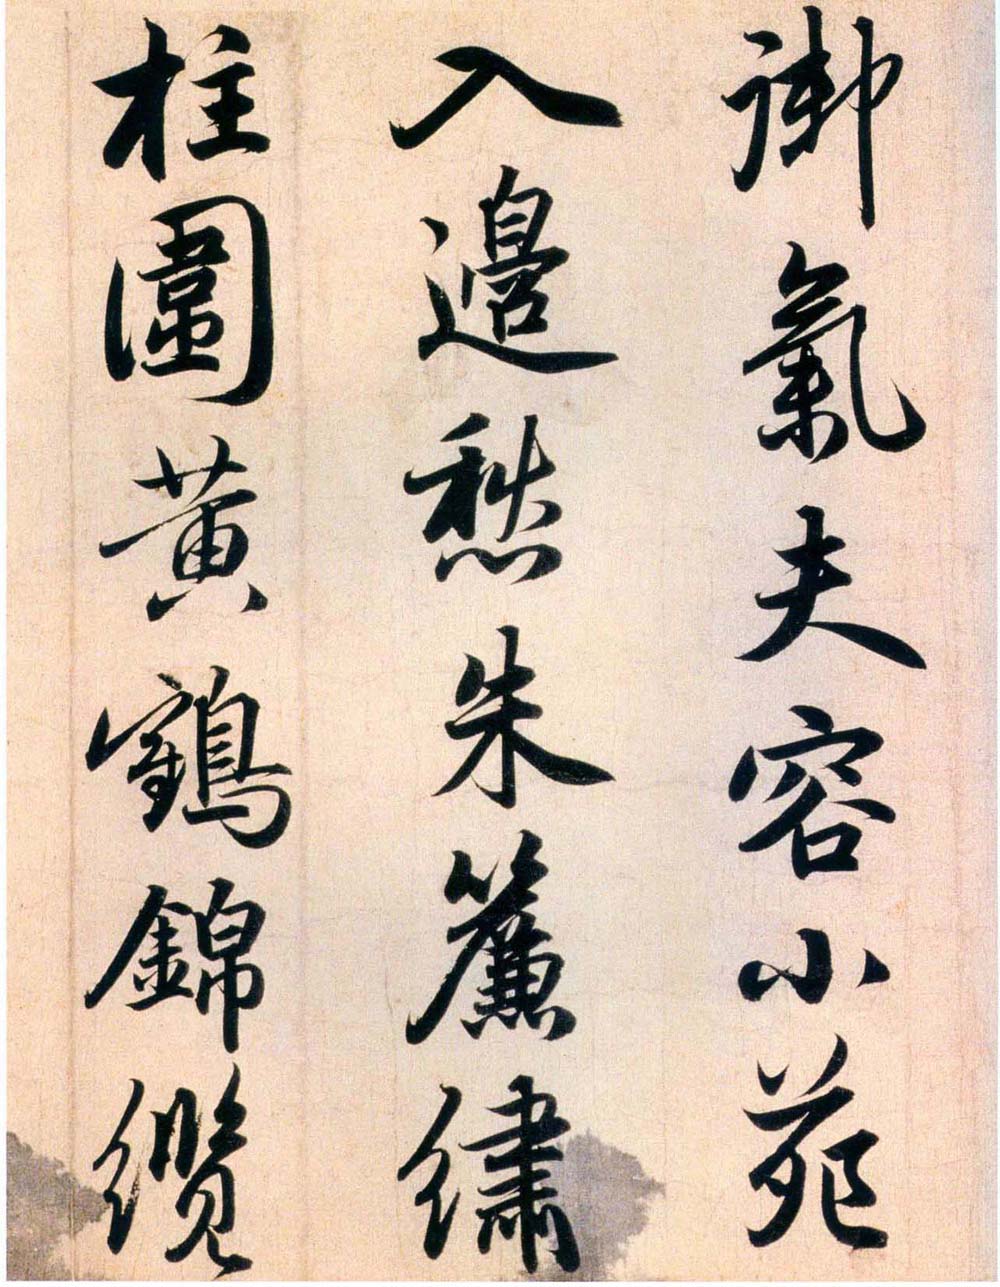 御氣夫容小苑
入邊愁朱簾繡
柱圍黄鶴錦纜